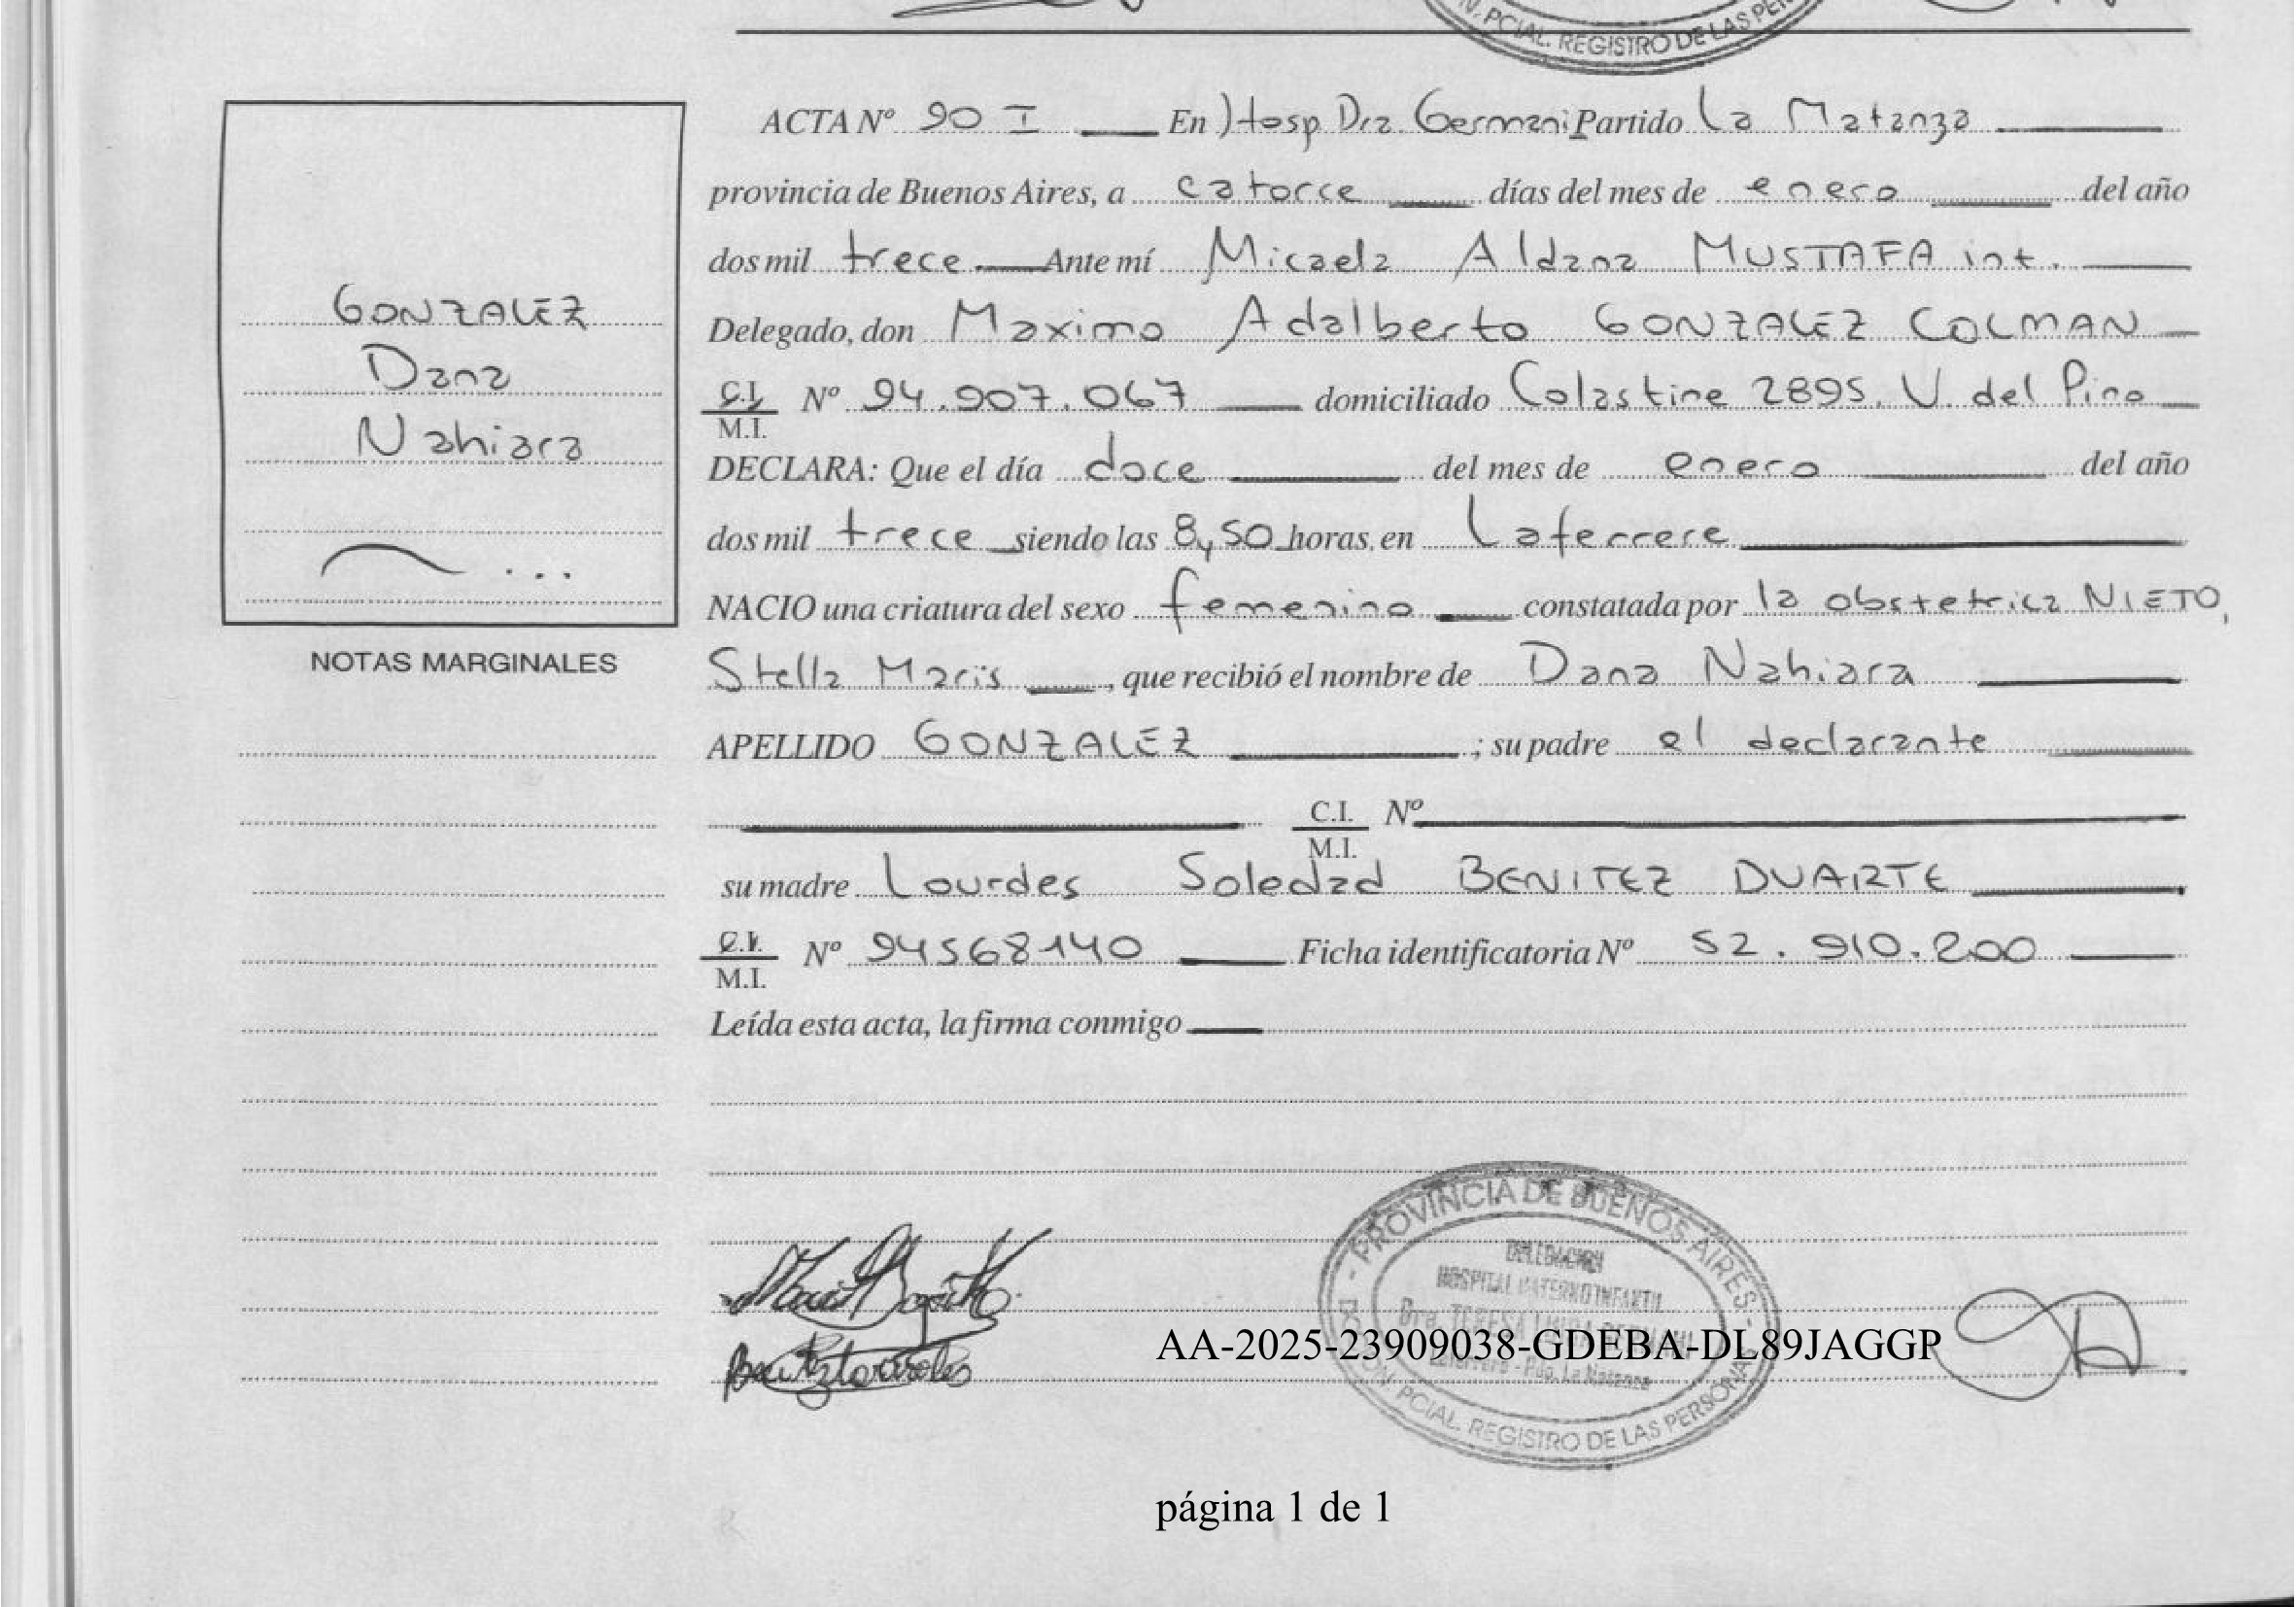 N. PCIAL. REGISTRO DE LAS PER
ACTA Nº 90 I En Hosp. Dra. Germani Partido La Matanza
provincia de Buenos Aires, a catorce días del mes de enero del año
dos mil trece Ante mí Micaela Aldana MUSTAFA int.
Delegado, don Maximo Adalberto GONZALEZ COLMAN
C.I. M.I. Nº 94.907.067 domiciliado Colastine 2895. V. del Pino
DECLARA: Que el día doce del mes de enero del año
dos mil trece siendo las 8,50 horas, en Laferrere
NACIO una criatura del sexo femenino constatada por la obstetrica NIETO,
Stella Maris, que recibió el nombre de Dana Nahiara
APELLIDO GONZALEZ; su padre el declarante
C.I. M.I. Nº
su madre Lourdes Soledad BENITEZ DUARTE
C.I. M.I. Nº 94568140 Ficha identificatoria Nº 52.910.200
Leída esta acta, la firma conmigo
GONZALEZ
Dana
Nahiara
...
NOTAS MARGINALES
- PROVINCIA DE BUENOS AIRES -
DELEGACION
HOSPITAL MATERNO INFANTIL
Dra. TERESA
Laferrere - Pdo. La Matanza
PCIAL. REGISTRO DE LAS PERSONAS
AA-2025-23909038-GDEBA-DL89JAGGP
página 1 de 1